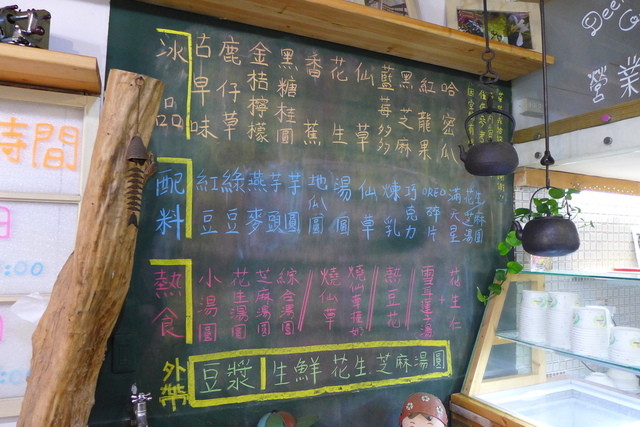 冰品
古早味
鹿仔草
金桔檸檬
黑糖桂圓
香蕉
花生
仙草
藍莓多多
黑芝麻
紅龍果
哈密瓜
配料
紅豆
綠豆
燕麥
芋頭
芋圓
地瓜圓
湯圓
仙草
煉乳
巧克力
OREO碎片
滿天星
花生芝麻湯圓
熱食
小湯圓
花生湯圓
芝麻湯圓
綜合湯圓
燒仙草
燒仙草鮮奶
熱豆花
雪耳蓮子湯
+
花生仁
外帶
豆漿
生鮮花生芝麻湯圓
時間
:00
Deer
營業